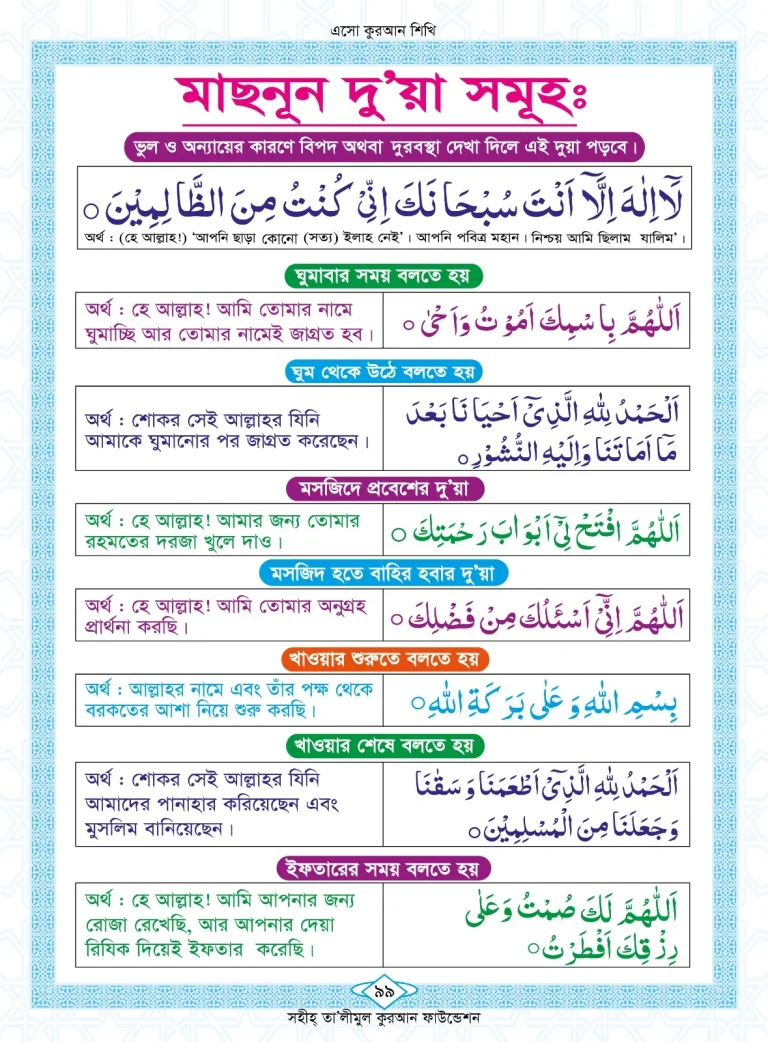 এসো কুরআন শিখি
মাছনূন দু'য়া সমূহঃ
ভুল ও অন্যায়ের কারণে বিপদ অথবা দুরবস্থা দেখা দিলে এই দুয়া পড়বে।
لَآ اِلٰهَ اِلَّآ اَنْتَ سُبْحَانَكَ اِنِّيْ كُنْتُ مِنَ الظَّالِمِيْنَ ○
অর্থ : (হে আল্লাহ!) 'আপনি ছাড়া কোনো (সত্য) ইলাহ নেই'। আপনি পবিত্র মহান। নিশ্চয় আমি ছিলাম যালিম'।
ঘুমাবার সময় বলতে হয়
অর্থ : হে আল্লাহ! আমি তোমার নামে
ঘুমাচ্ছি আর তোমার নামেই জাগ্রত হব।
اَللّٰهُمَّ بِاسْمِكَ اَمُوْتُ وَاَحْىٰ ○
ঘুম থেকে উঠে বলতে হয়
অর্থ : শোকর সেই আল্লাহর যিনি
আমাকে ঘুমানোর পর জাগ্রত করেছেন।
اَلْحَمْدُ لِلّٰهِ الَّذِيْٓ اَحْيَانَا بَعْدَ
مَآ اَمَاتَنَا وَاِلَيْهِ النُّشُوْرُ ○
মসজিদে প্রবেশের দু'য়া
অর্থ : হে আল্লাহ! আমার জন্য তোমার
রহমতের দরজা খুলে দাও।
اَللّٰهُمَّ افْتَحْ لِيْٓ اَبْوَابَ رَحْمَتِكَ ○
মসজিদ হতে বাহির হবার দু'য়া
অর্থ : হে আল্লাহ! আমি তোমার অনুগ্রহ
প্রার্থনা করছি।
اَللّٰهُمَّ اِنِّيْٓ اَسْئَلُكَ مِنْ فَضْلِكَ ○
খাওয়ার শুরুতে বলতে হয়
অর্থ : আল্লাহর নামে এবং তাঁর পক্ষ থেকে
বরকতের আশা নিয়ে শুরু করছি।
بِسْمِ اللّٰهِ وَعَلٰى بَرَكَةِ اللّٰهِ ○
খাওয়ার শেষে বলতে হয়
অর্থ : শোকর সেই আল্লাহর যিনি
আমাদের পানাহার করিয়েছেন এবং
মুসলিম বানিয়েছেন।
اَلْحَمْدُ لِلّٰهِ الَّذِيْٓ اَطْعَمَنَا وَسَقٰنَا
وَجَعَلَنَا مِنَ الْمُسْلِمِيْنَ ○
ইফতারের সময় বলতে হয়
অর্থ : হে আল্লাহ! আমি আপনার জন্য
রোজা রেখেছি, আর আপনার দেয়া
রিযিক দিয়েই ইফতার করেছি।
اَللّٰهُمَّ لَكَ صُمْتُ وَعَلٰى
رِزْقِكَ اَفْطَرْتُ ○
৯৯
সহীহ্ তা'লীমুল কুরআন ফাউন্ডেশন